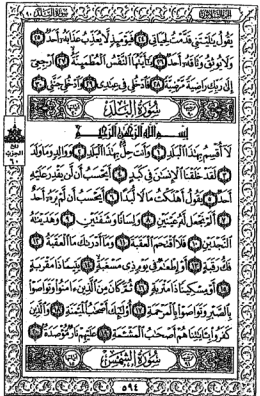 يَقُولُ يَٰلَيْتَنِى قَدَّمْتُ لِحَيَاتِى ٢٤ فَيَوْمَئِذٍ لَّا يُعَذِّبُ عَذَابَهُۥٓ أَحَدٌ ٢٥
وَلَا يُوثِقُ وَثَاقَهُۥٓ أَحَدٌ ٢٦ يَٰٓأَيَّتُهَا ٱلنَّفْسُ ٱلْمُطْمَئِنَّةُ ٢٧ ٱرْجِعِىٓ
إِلَىٰ رَبِّكِ رَاضِيَةً مَّرْضِيَّةً ٢٨ فَٱدْخُلِى فِى عِبَٰدِى ٢٩ وَٱدْخُلِى جَنَّتِى ٣٠
سُورَةُ الْبَلَدِ
بِسْمِ ٱللَّهِ ٱلرَّحْمَٰنِ ٱلرَّحِيمِ
لَآ أُقْسِمُ بِهَٰذَا ٱلْبَلَدِ ١ وَأَنتَ حِلٌّۢ بِهَٰذَا ٱلْبَلَدِ ٢ وَوَالِدٍ وَمَا وَلَدَ
٣ لَقَدْ خَلَقْنَا ٱلْإِنسَٰنَ فِى كَبَدٍ ٤ أَيَحْسَبُ أَن لَّن يَقْدِرَ عَلَيْهِ
أَحَدٌ ٥ يَقُولُ أَهْلَكْتُ مَالًا لُّبَدًا ٦ أَيَحْسَبُ أَن لَّمْ يَرَهُۥٓ أَحَدٌ
٧ أَلَمْ نَجْعَل لَّهُۥ عَيْنَيْنِ ٨ وَلِسَانًا وَشَفَتَيْنِ ٩ وَهَدَيْنَٰهُ
ٱلنَّجْدَيْنِ ١٠ فَلَا ٱقْتَحَمَ ٱلْعَقَبَةَ ١١ وَمَآ أَدْرَىٰكَ مَا ٱلْعَقَبَةُ ١٢
فَكُّ رَقَبَةٍ ١٣ أَوْ إِطْعَٰمٌ فِى يَوْمٍ ذِى مَسْغَبَةٍ ١٤ يَتِيمًا ذَا مَقْرَبَةٍ
١٥ أَوْ مِسْكِينًا ذَا مَتْرَبَةٍ ١٦ ثُمَّ كَانَ مِنَ ٱلَّذِينَ ءَامَنُوا۟ وَتَوَاصَوْا۟
بِٱلصَّبْرِ وَتَوَاصَوْا۟ بِٱلْمَرْحَمَةِ ١٧ أُو۟لَٰٓئِكَ أَصْحَٰبُ ٱلْمَيْمَنَةِ ١٨ وَٱلَّذِينَ
كَفَرُوا۟ بِـَٔايَٰتِنَا هُمْ أَصْحَٰبُ ٱلْمَشْـَٔمَةِ ١٩ عَلَيْهِمْ نَارٌ مُّؤْصَدَةٌۢ ٢٠
سُورَةُ الشَّمْسِ
٥٩٤